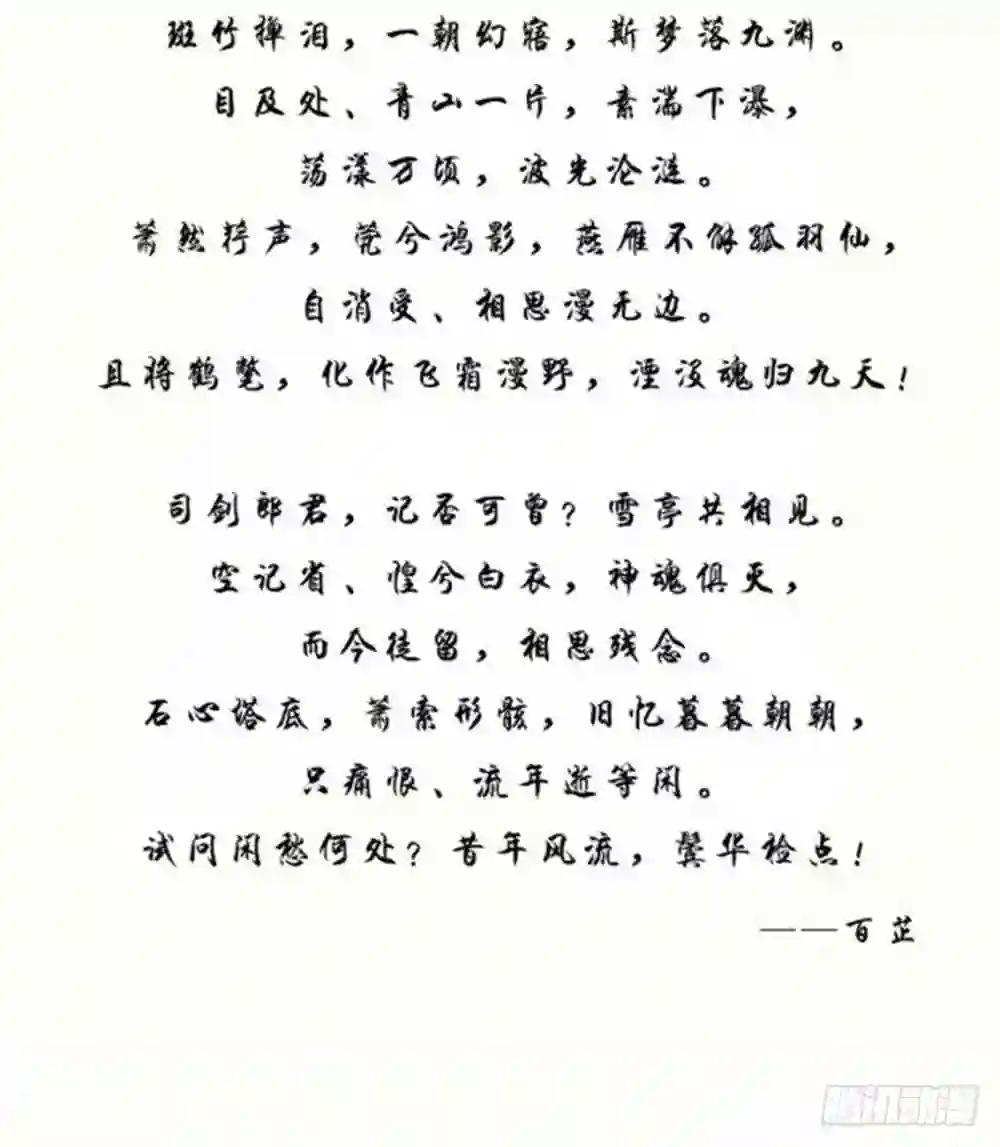 斑竹掸泪，一朝幻寤，斯梦落九渊。
目及处、青山一片，素湍下瀑，
荡漾万顷，波光沦涟。
萧然捋声，茕兮鸿影，燕雁不解孤羽仙，
自消受、相思漫无边。
且将鹤氅，化作飞霜漫野，湮没魂归九天！
司剑郎君，记否可曾？雪亭共相见。
空记省、惶兮白衣，神魂俱灭，
而今徒留，相思残念。
石心塔底，萧索形骸，旧忆暮暮朝朝，
只痛恨、流年逝等闲。
试问闲愁何处？昔年风流，鬓华检点！
——百芷
腾讯动漫